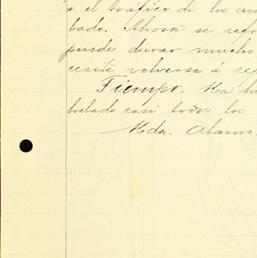 el tráfico de los au
bado. Ahora se refo
puede durar mucho
cesite volverse á re
Tiempo. Ha h
helado casi todos los
Mda. Alamos